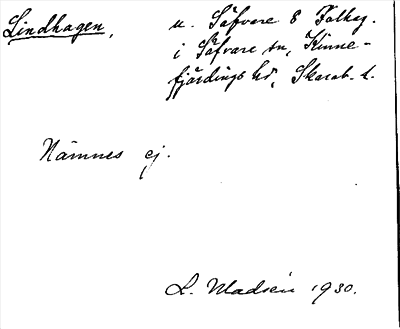 Lindhagen, u. Säfvare 8 Folkeg.
i Säfvare sn, Kinne-
fjärdings hd, Skarab. l.
Nämnes ej.
L. Madsén 1930.